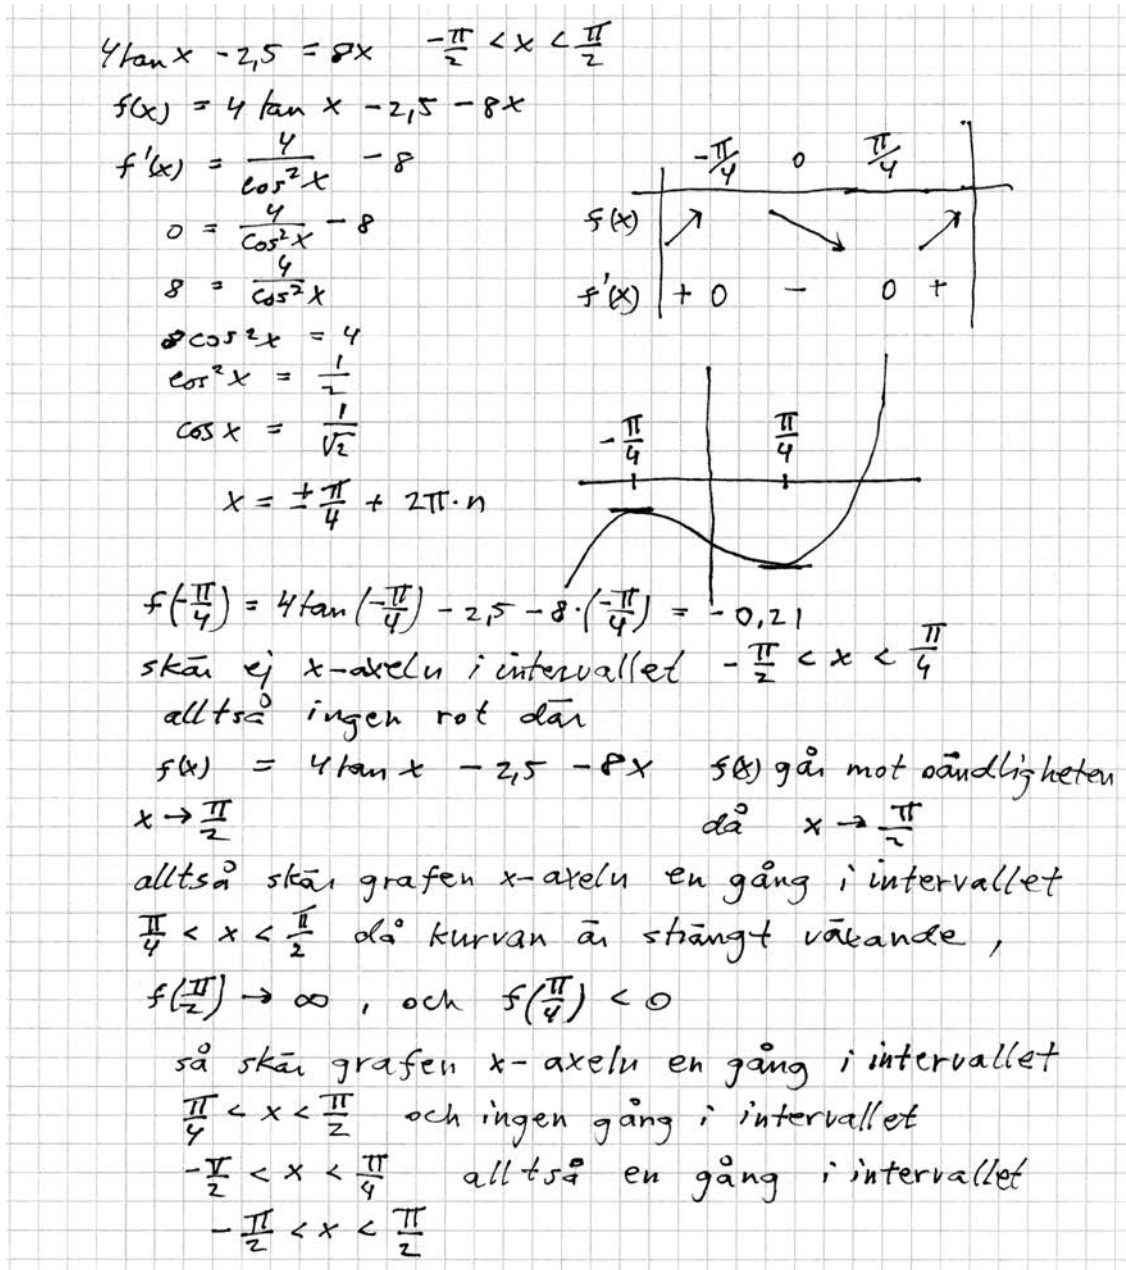 4tan x - 2,5 = 8x   -π/2 < x < π/2
f(x) = 4 tan x - 2,5 - 8x
f'(x) = 4/cos²x - 8
0 = 4/cos²x - 8
8 = 4/cos²x
8cos²x = 4
cos²x = 1/2
cos x = 1/√2
x = ±π/4 + 2π·n
-π/4   0   π/4
f(x) ↗ ↘ ↗
f'(x) + 0 - 0 +
-π/4   π/4
f(-π/4) = 4tan(-π/4) - 2,5 - 8·(-π/4) = -0,21
skär ej x-axeln i intervallet -π/2 < x < π/4
alltså ingen rot där
f(x) = 4tan x - 2,5 - 8x   f(x) går mot oändligheten
x → π/2   då x → π/2
alltså skär grafen x-axeln en gång i intervallet
π/4 < x < π/2 då kurvan är strängt växande,
f(π/2) → ∞, och f(π/4) < 0
så skär grafen x-axeln en gång i intervallet
π/4 < x < π/2 och ingen gång i intervallet
-π/2 < x < π/4 alltså en gång i intervallet
-π/2 < x < π/2